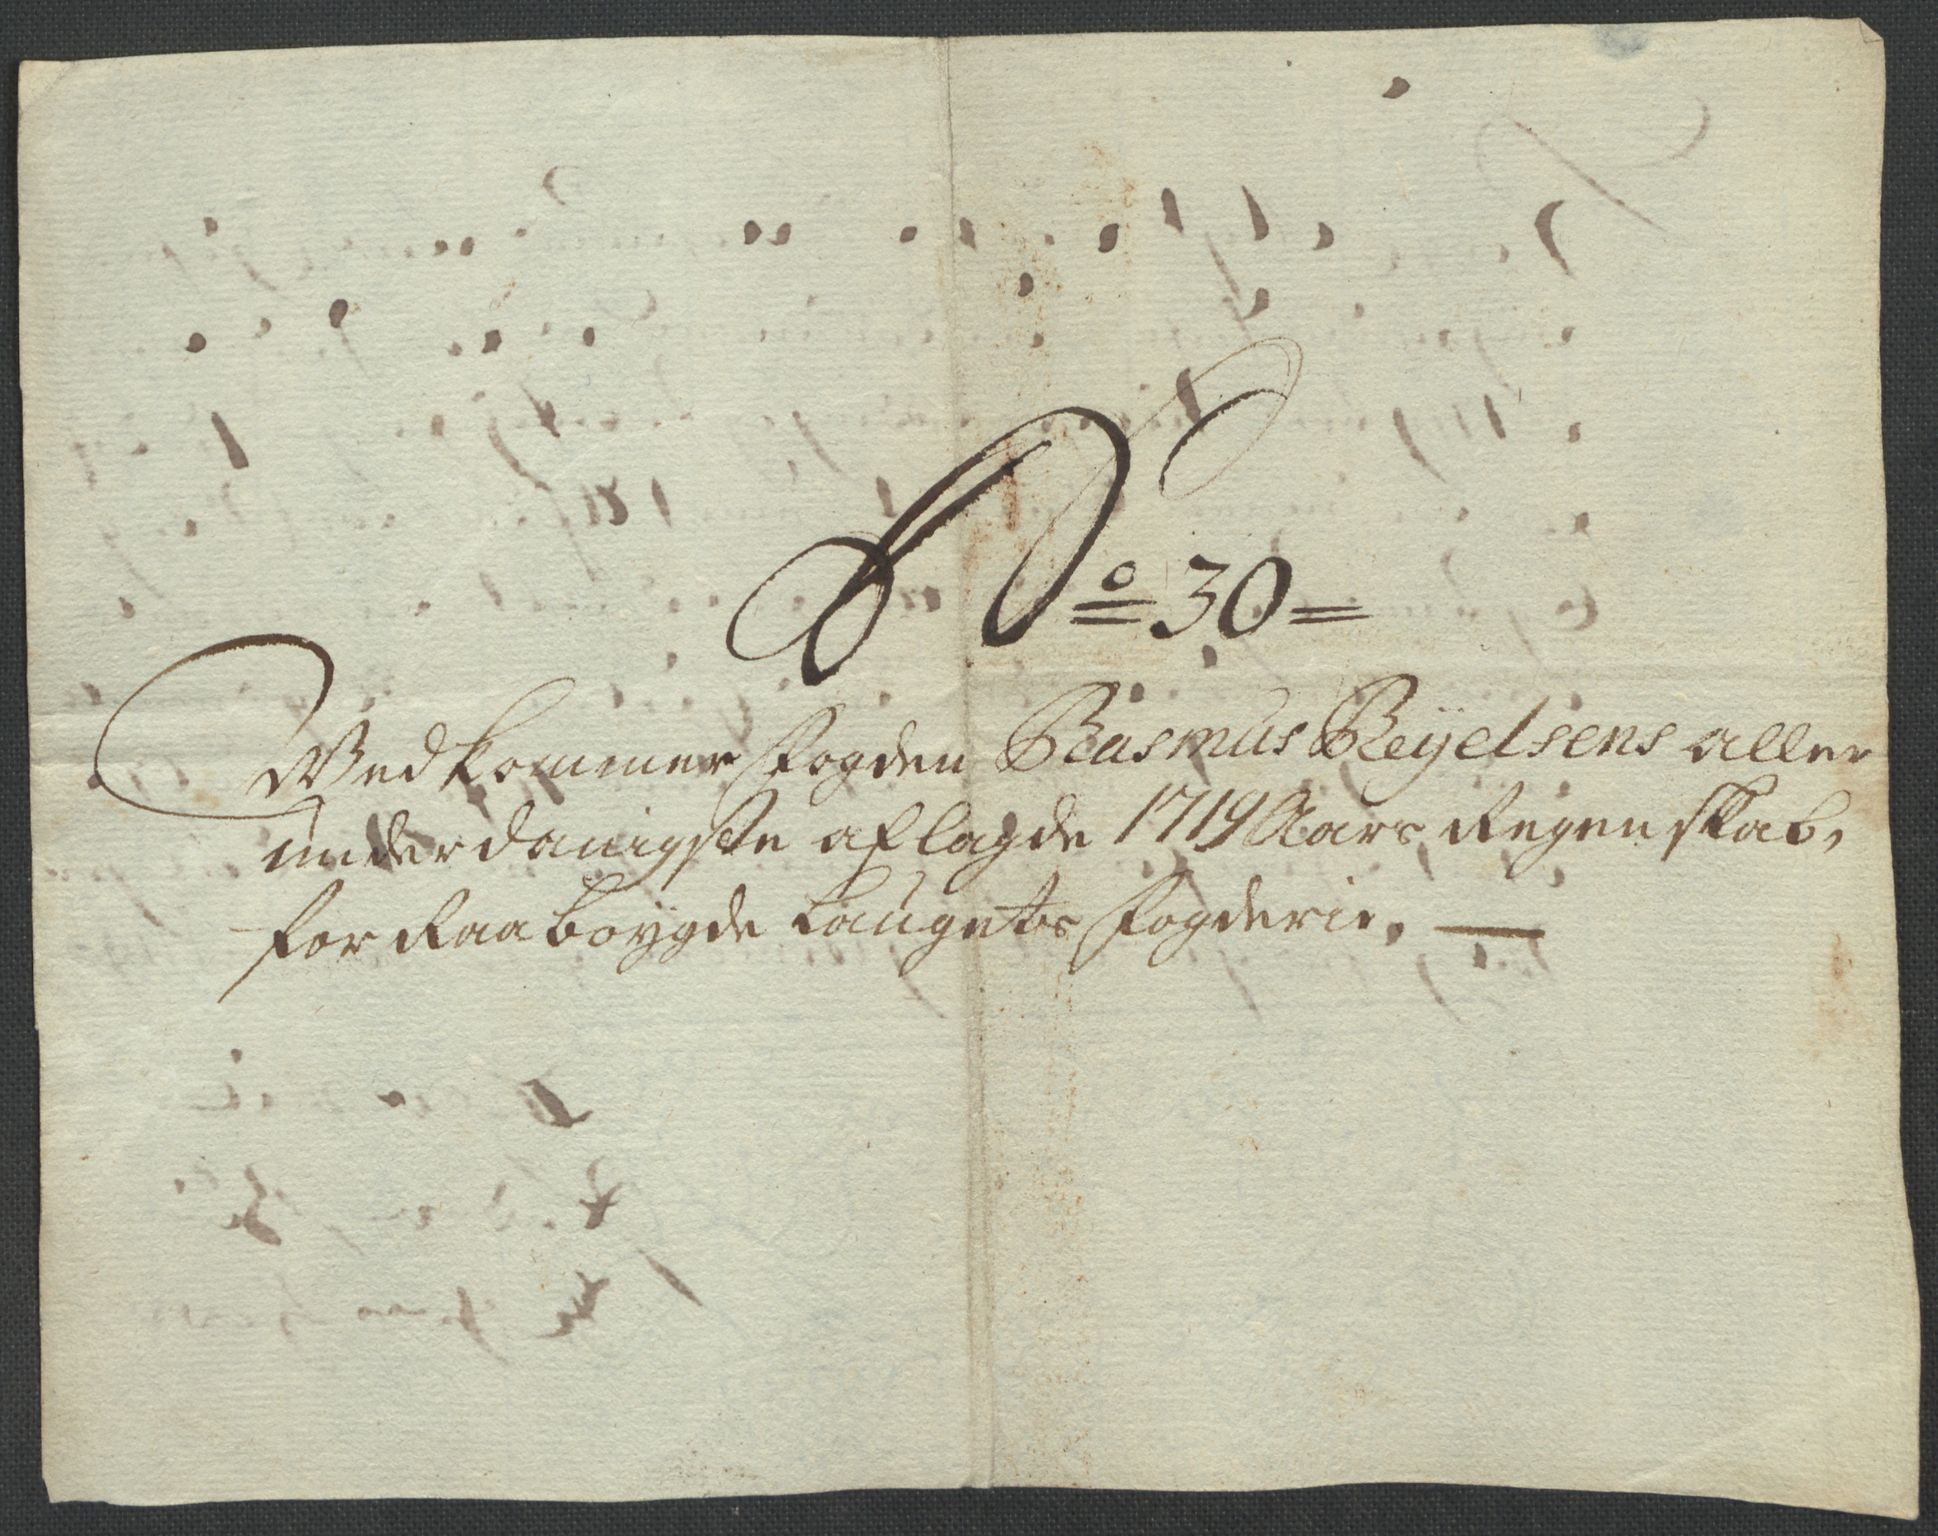 No 30 =
Vedkommer Fogden Rasmus Reyelsens aller
underdanigste aflagde 1719 Aars Regenskab,
for Raabøygde Laugets Fogderie.